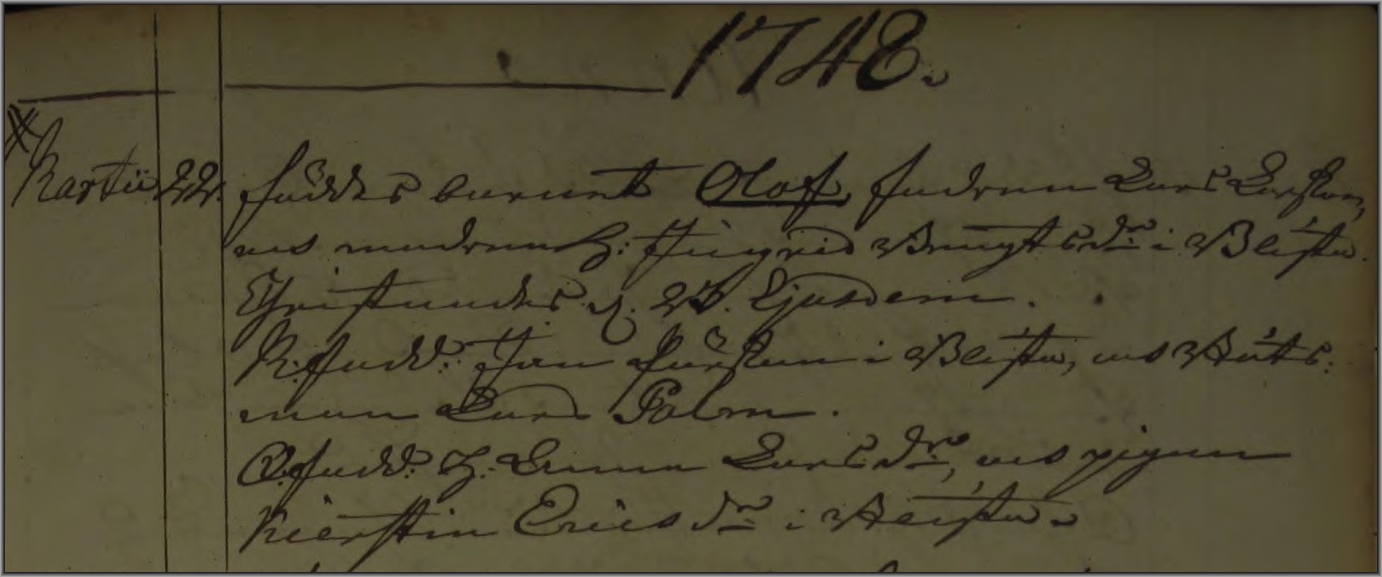 1748.
Martii 22. föddes barnet Olof, fadren Lars Larsson,
och modren H: Ingrid Bengtsdr i Blista.
Christnades d. 25. Ejusdem.
M:fadd: Jan Larsson i Blista, och Båts-
man Lars Palm.
Q:fadd: H: Anna Larsdr, och pigan
Kierstin Ericsdr i